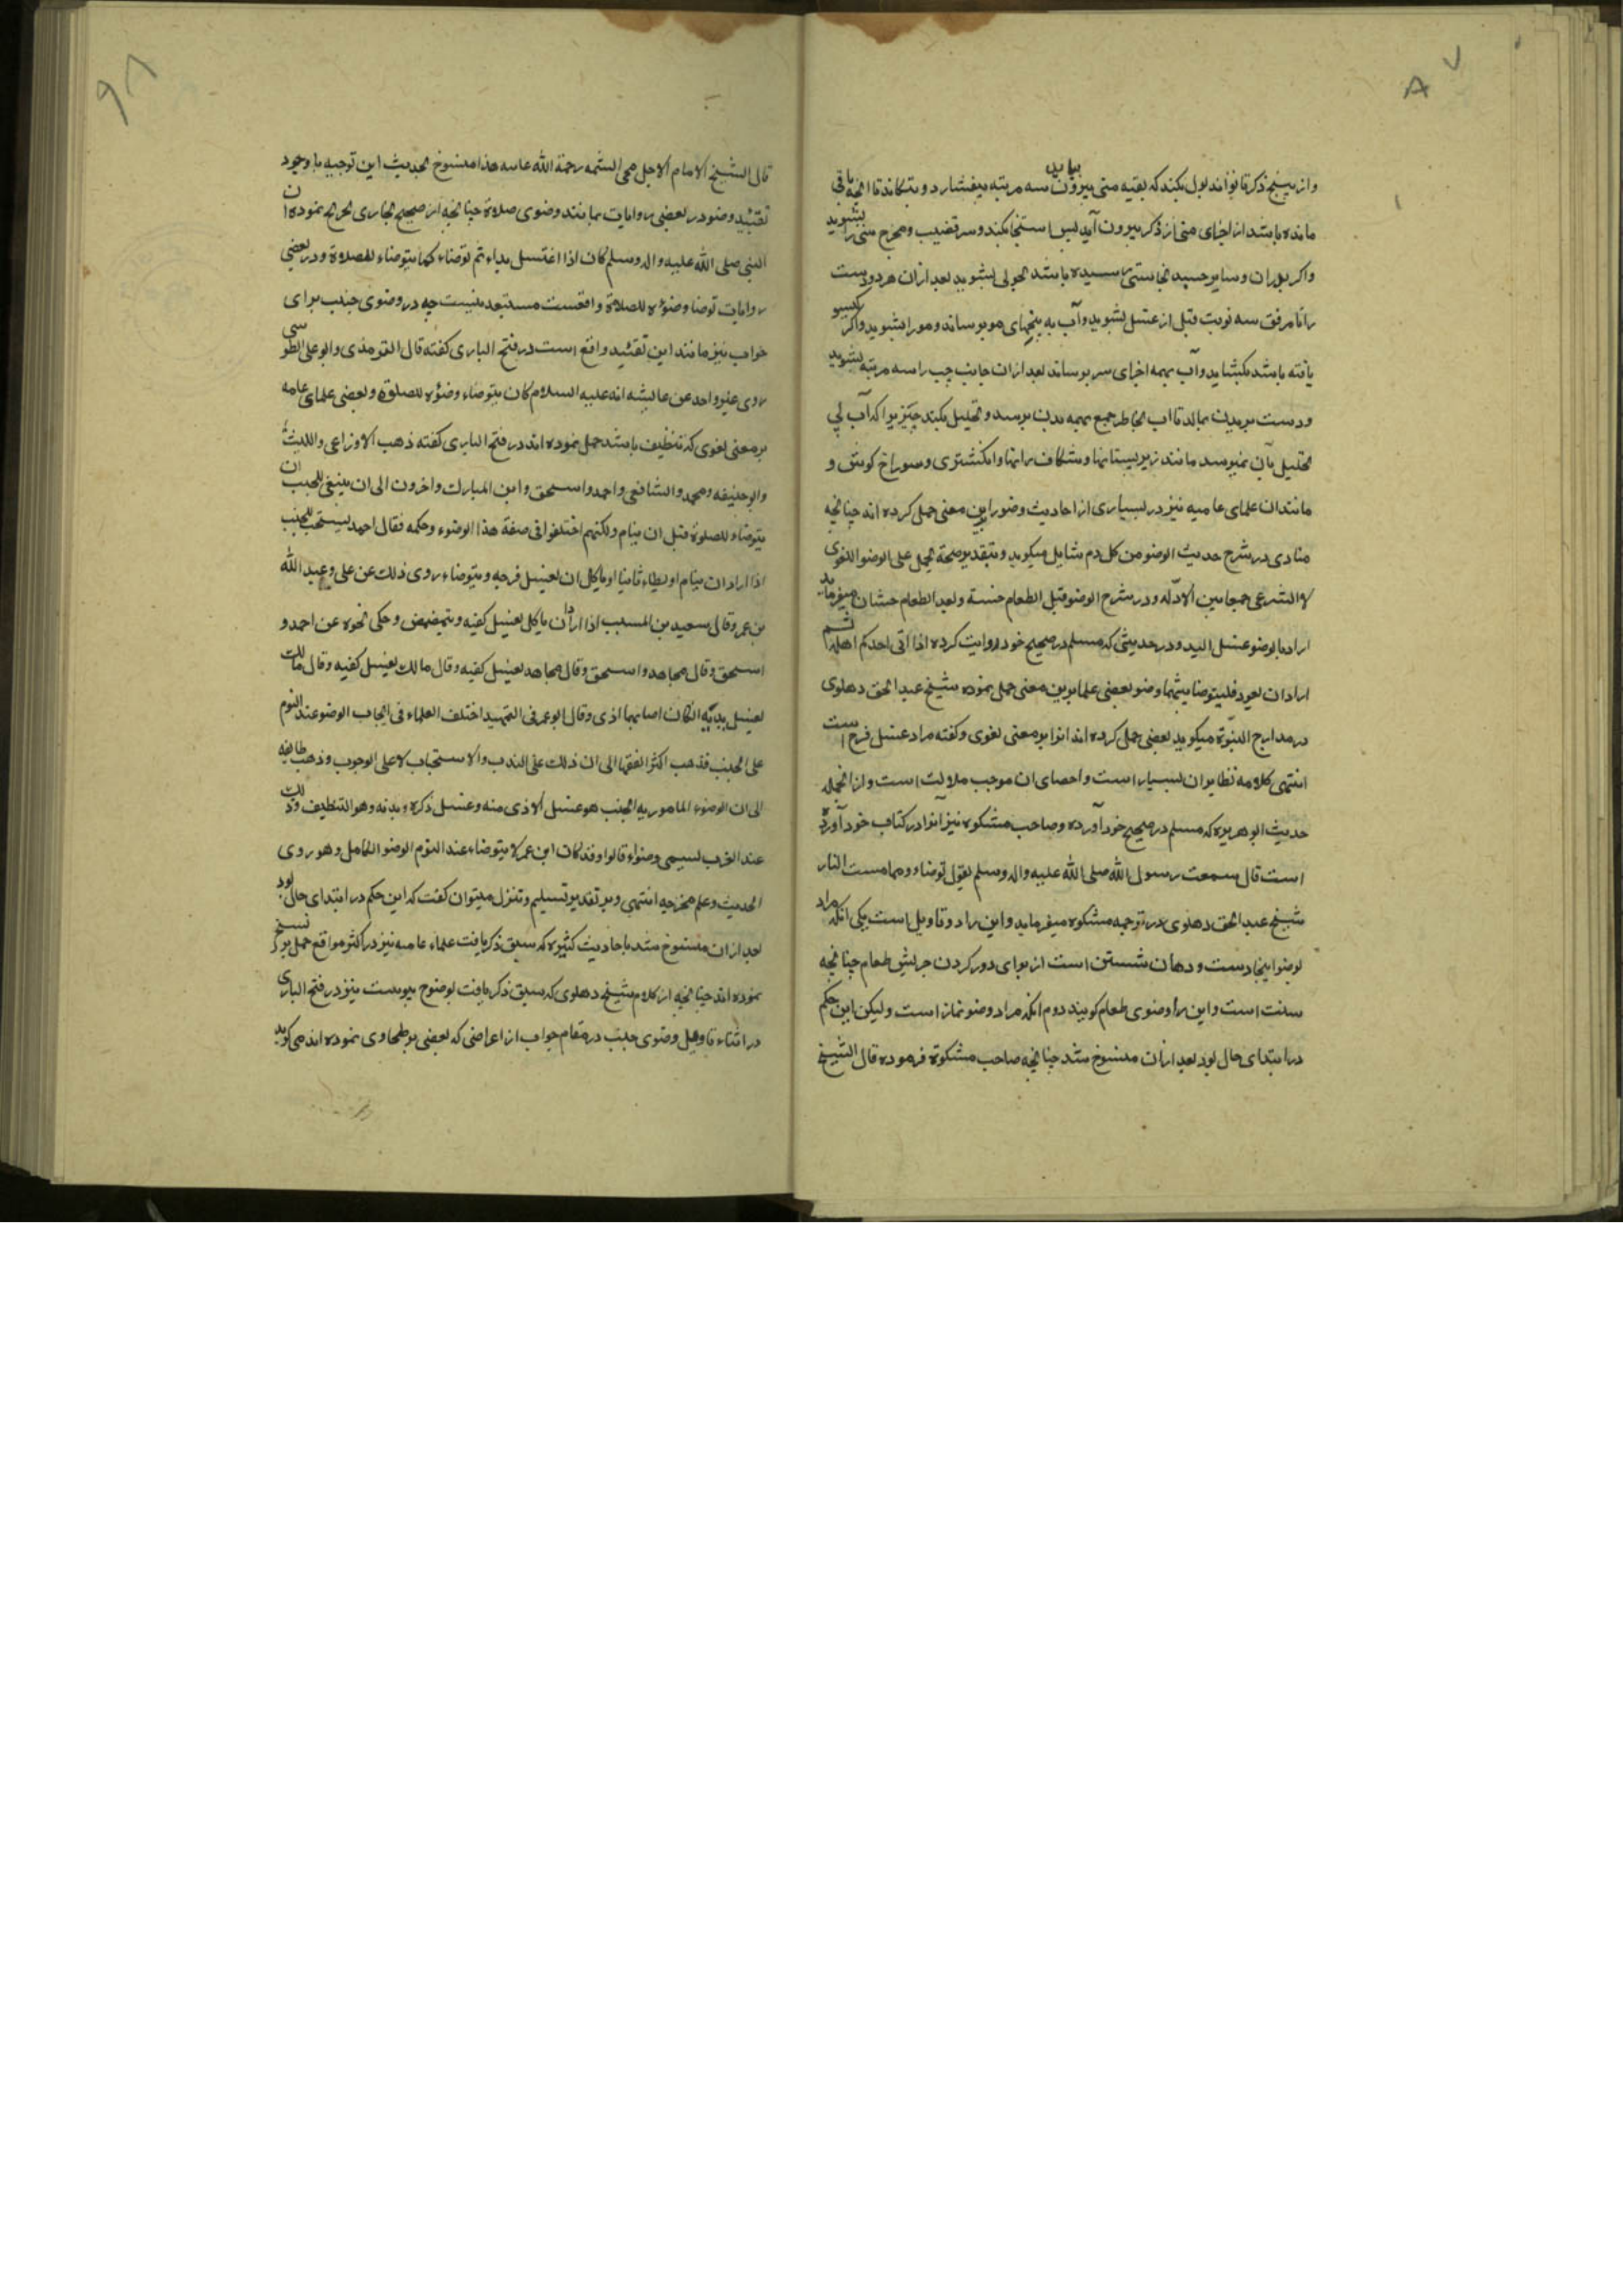 ۸۷
و از بیخ ذکر تا نوک بول بکند که بقیه منی بیرون سه مرتبه بیفشارد و بتکاند تا آنچه باقی
مانده باشد از اجزای منی از ذکر بیرون آید پس استنجا بکند و سر قضیب و مخرج منی را بشوید
واکر بران و سایر جسد نجاستی رسیده باشد بشوید بعد از ان هر دو دست
را تا مرفق سه نوبت قبل از غسل بشوید و آب به بیخهای مو برساند و مو را بشوید واکر کیسو
بافته باشد بکشاید و آب بهمه اجزای سر برساند بعد از ان جانب چپ را سه مرتبه بشوید
و دست بر بدن بمالد تا اب بخاطر جمع بهمه بدن برسد و تخلیل بکند چیزیرا که آب بی
تخلیل بآن نمیرسد مانند زیر پستانها و شکاف رانها و انکشتری و سوراخ کوش و
مانند ان علمای عامیه نیز در بسیاری از احادیث وضو را برین معنی حمل کرده اند چنانچه
منادی در شرح حدیث الوضو من کل دم سایل میکوید و بتقدیر صحته یحمل علی الوضو اللغوی
لا الشرعی جمعا بین الادله و در شرح الوضو قبل الطعام حسنة و بعد الطعام حسنتان میفرماید
اراد بالوضو غسل الید و در حدیثی که مسلم در صحیح خود روایت کرده اذا اتی احدکم اهله ثم
اراد ان یعود فلیتوضا بینهما وضو بعضی علما برین معنی حمل نموده شیخ عبد الحق دهلوی
در مدارج النبوّة میکوید بعضی حمل کرده اند انرا بر معنی لغوی و کفته مراد غسل فرج است
انتهی کلامه نظایر ان بسیار است و احصای ان موجب ملالت است و از انجمله
حدیث ابو هریره که مسلم در صحیح خود آورده و صاحب مشکوه نیز انرا در کتاب خود آورده
است قال سمعت رسول الله صلی الله علیه واله وسلم یقول توضاءو مما مست النار
شیخ عبد الحق دهلوی در ترجمه مشکوه میفرماید و این را دو تاویل است یکی آنکه مراد
بوضو اینجا دست و دهان شستن است از برای دور کردن چربش طعام چنانچه
سنت است و این را وضوی طعام کویند دوم آنکه مراد وضو نماز است ولیکن این حکم
در ابتدای حال بود بعد از آن منسوخ شد چنانچه صاحب مشکوة فرموده قال الشیخ
قال الشیخ الامام الاجل محی السنه رحمة الله علیه هذا منسوخ بحدیث این توجیه با وجود
تقیید وضو در بعضی روایات بمانند وضوی صلاة چنانچه در صحیح بخاری تخریج نموده ان
النبی صلی الله علیه واله وسلم کان اذا اغتسل بداء ثم توضاء کما یتوضاء للصلاة و در بعضی
روایات توضا وضوئه للصلاة واقعست مستبعد نیست چه در وضوی جنب برای
خواب نیز مانند این تقیید واقع است در فتح الباری کفته قال الترمذی وابو علی الطوسی
روی غیر واحد عن عایشه انه علیه السلام کان یتوضاء وضوئه للصلوة و بعضی علمای عامه
بر معنی لغوی که تنظیف باشد حمل نموده اند در فتح الباری کفته ذهب الاوزاعی واللیث
وابو حنیفه ومحمد والشافعی واحمد واسحق وابن المبارک واخرون الی ان ینبغی للجنب ان
یتوضاء للصلوة قبل ان ینام ولکنهم اختلفوا فی صفة هذا الوضوء وحکمه فقال احمد یستحب للجنب
اذا اراد ان ینام او یطاء ثانیا او یاکل ان یغسل فرجه ویتوضاء روی ذلک عن علی وعبد الله
بن عمر وقال سعید بن المسیب اذا اراد ان یاکل یغسل کفیه ویتمضمض وحکی نحوه عن احمد و
اسحق وقال مجاهد واسحق وقال مجاهد یغسل کفیه وقال مالک یغسل کفیه وقال مالک
یغسل یدیه انکان اصابهما اذی وقال ابو عمر فی التمهید اختلف العلماء فی ایجاب الوضو عند النوم
علی الجنب فذهب اکثر الفقها الی ان ذلک علی الندب والاستحباب لا علی الوجوب وذهب طایفه
الی ان الوضوء المامور به الجنب هو غسل الاذی منه وغسل ذکره ویدیه وهو التنظیف وذلک
عند العرب یسمی وضوء قالوا وقد کان ابن عمر لا یتوضاء عند النوم الوضو الکامل وهو روی
الحدیث وعلم مخرجه انتهی و بر تقدیر تسلیم و تنزل میتوان کفت که این حکم در ابتدای حال بود
بعد از ان منسوخ شد باحادیث کثیره که سبق ذکر یافت علماء عامه نیز در اکثر مواقع حمل بر نسخ
نموده اند چنانچه از کلام شیخ دهلوی که سبق ذکر یافت بوضوح پیوست نیز در فتح الباری
در اثناء تاویل وضوی جنب در مقام جواب از اعراضی که بعضی بر طحاوی نموده اند می کوید